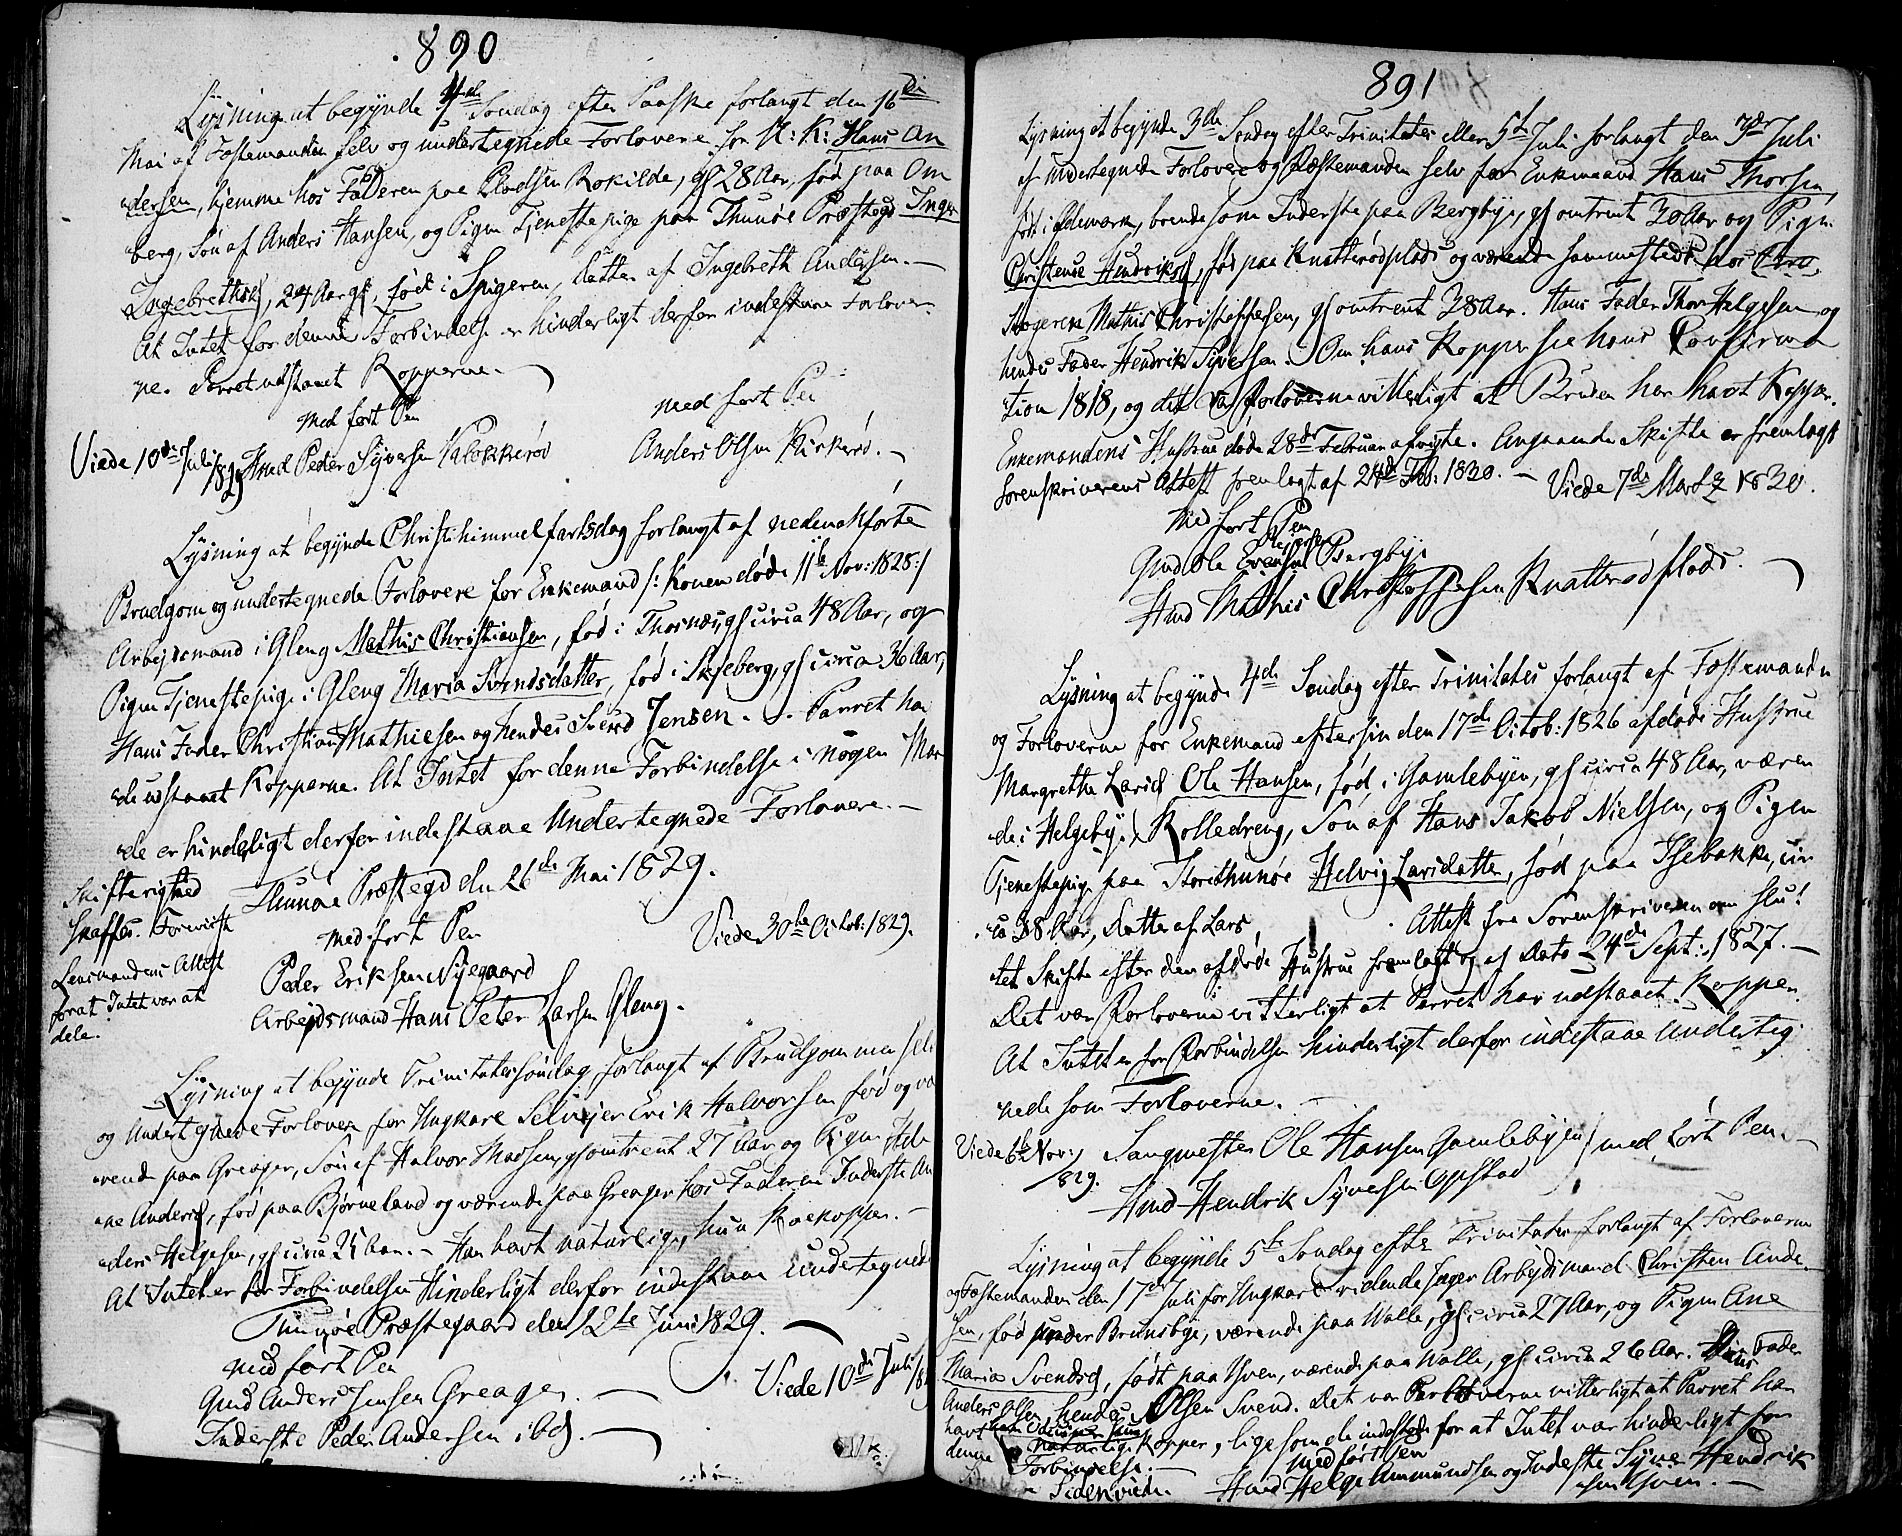 890
Lysning at begynde 4de Søndag efter Paaske forlangt den 16de
Mai af Fæstemanden selv og undertegnede Forlovere for U: K: Hans An
dersen, hjemme hos Faderen paa Pladsen Rokilde, gl 28 Aar, fød paa Om
berg, Søn af Anders Hansen, og Pigen Tjenestepige paa Thunøe Præstegd Inger
Ingebrethsd, 24 Aar gl, født i Spigeren, datter af Ingebreth Andersen. —
At Intet for denne Forbindelse er hinderligt derfor indestaae Forlover
ne. Parret udstaaet Kopperne. —
med ført Pen
med ført Pen
Viede 10de Juli 1829
Hmd Peder Syversen Kalokkerød
Anders Olsen Kirkerød. —
Lysning at begynde Christihimmelfartsdag forlangt af nedenanførte
Brudgom og undertegnede Forlovere for Enkemand /: Konen døde 11te Nov: 1828:/
Arbejdsmand i Gleng Mathis Christiansen, fød i Thorsnæs, gl circa 48 Aar, og
Pigen Tjenestepige i Gleng Maria Svendsdatter, fød i Skjeberg, gl circa 36 Aar,
Hans Fader Christian Mathiesen og hendes Svend Jensen. — Parret ha
de udstaaet Kopperne. At Intet for denne Forbindelse i nogen Maa
de er hinderligt derfor indestaae Undertegnede Forlovere. —
Thunøe Præstegd den 26de Mai 1829.
Skifterighed
skaffes. Foreviist
Lensmandens Attest
for at Intet var at
dele.
med ført Pen
Viede 30te Octob: 1829.
Peder Eriksen Nyegaard
Arbejdsmand Hans Peter Larsen Gleng.
Lysning at begynde Trinitatis søndag forlangt af Brudgommen selv
og Undertegnede Forlovere for Ungkarl Selvejer Erik Halvorsen fød og væ
rende paa Greager, Søn af Halvor Madsen, gl omtrent 27 Aar og Pigen Hele
ne Andersd, fød paa Bjørneland og værende paa Greager hos Faderen Inderste An
ders Helgesen, gl circa 25 Aar. — Han havt naturlige, hun Koekopper. —
At Intet er for Forbindelsen Hinderligt derfor indestaae Undertegnede
Thunøe Præstegaard den 12te Juni 1829. —
med ført Pen
Viede 10de Juli 18
Gmd Anders Jensen Greager. —
Inderste Peder Andersen ibd. —
891
Lysning at begynde 3de Søndag efter Trinitatis eller 5te Juli forlangt den 3de Juli
af Undertegnede Forlovere og Fæstemanden selv for Enkemand Hans Thorsen,
født i boende som Inderste paa Bergbye, gl omtrent 30 Aar og Pigen
Christense Hendriksd, fød paa Knatterødplads og værende sammesteds hos
Mathis Christophersen, gl omtrent 38 Aar. Hans Fader Thor Helgesen og
hendes Fader Hendrik Syversen. Om hans Kopper see hans Confirma
tion 1818, og det var forloverne vitterligt at Bruden har havt Kopper.
Enkemandens Hustrue døde 28de Februar afvigte. Angaaende Skifte er fremlagt
Sorenskriverens Attest fremlagt af 24de Feb: 1830. — Viede 7de Martz 1830.
Med ført Pen
Gmd Ole Bergbye
Hmd Mathis Christophersen Knatterødplads. —
Lysning at begynde 4de Søndag efter Trinitatis forlangt af Fæstemanden
og Forloverne for Enkemand efter sin den 17de Octob: 1826 afdøde Hustrue
Margrethe Larsd Ole Hansen, fød i Gamlebyen, gl circa 48 Aar, væren
de i Helgeby, Rolledreng, Søn af Hans Jakob Nielsen, og Pigen
Tjenestepige paa Storethunøe Helvig Larsdatter, fød paa Isebakke, cir
ca 38 Aar, Datter af Lars, Attest fra Sorenskriveren om slut
tet Skifte efter den afdøde Hustrue fremlagt og af Dato 24de Sept: 1827. —
Det var Forloverne vitterligt at Parret har udstaaet Kopper.
At Intet er for Forbindelsen hinderligt derfor indestaae Underteg
nede som Forloverne. —
Viede 6te Nov: 1829.
Sangmester Ole Hansen Gamlebyen / med ført Pen. —
Hmd Hendrik Syversen Opstad
Lysning at begynde 5te Søndag efter Trinitatis forlangt af Forloverne
og Fæstemanden den 17de Juli for Ungkarl ridende Jæger Arbejdsmand Christen Ander
sen, fød under Brunsbye, værende paa Walle, gl circa 27 Aar, og Pigen Ane
Maria Svendsd, født paa Hven, værende paa Walle, gl circa 26 Aar. Hans Fader
Anders Olsen hendes Olsen Svend. Det var Forloverne vitterligt at Parret har
havt naturlige Kopper, ligesom de indestode for at Intet var hinderligt for
denne Forbindelse. —
med ført Pen
Siden viede. Hmd Helge Ammundsen og Inderste Syver Hendrik
sen Hven. —